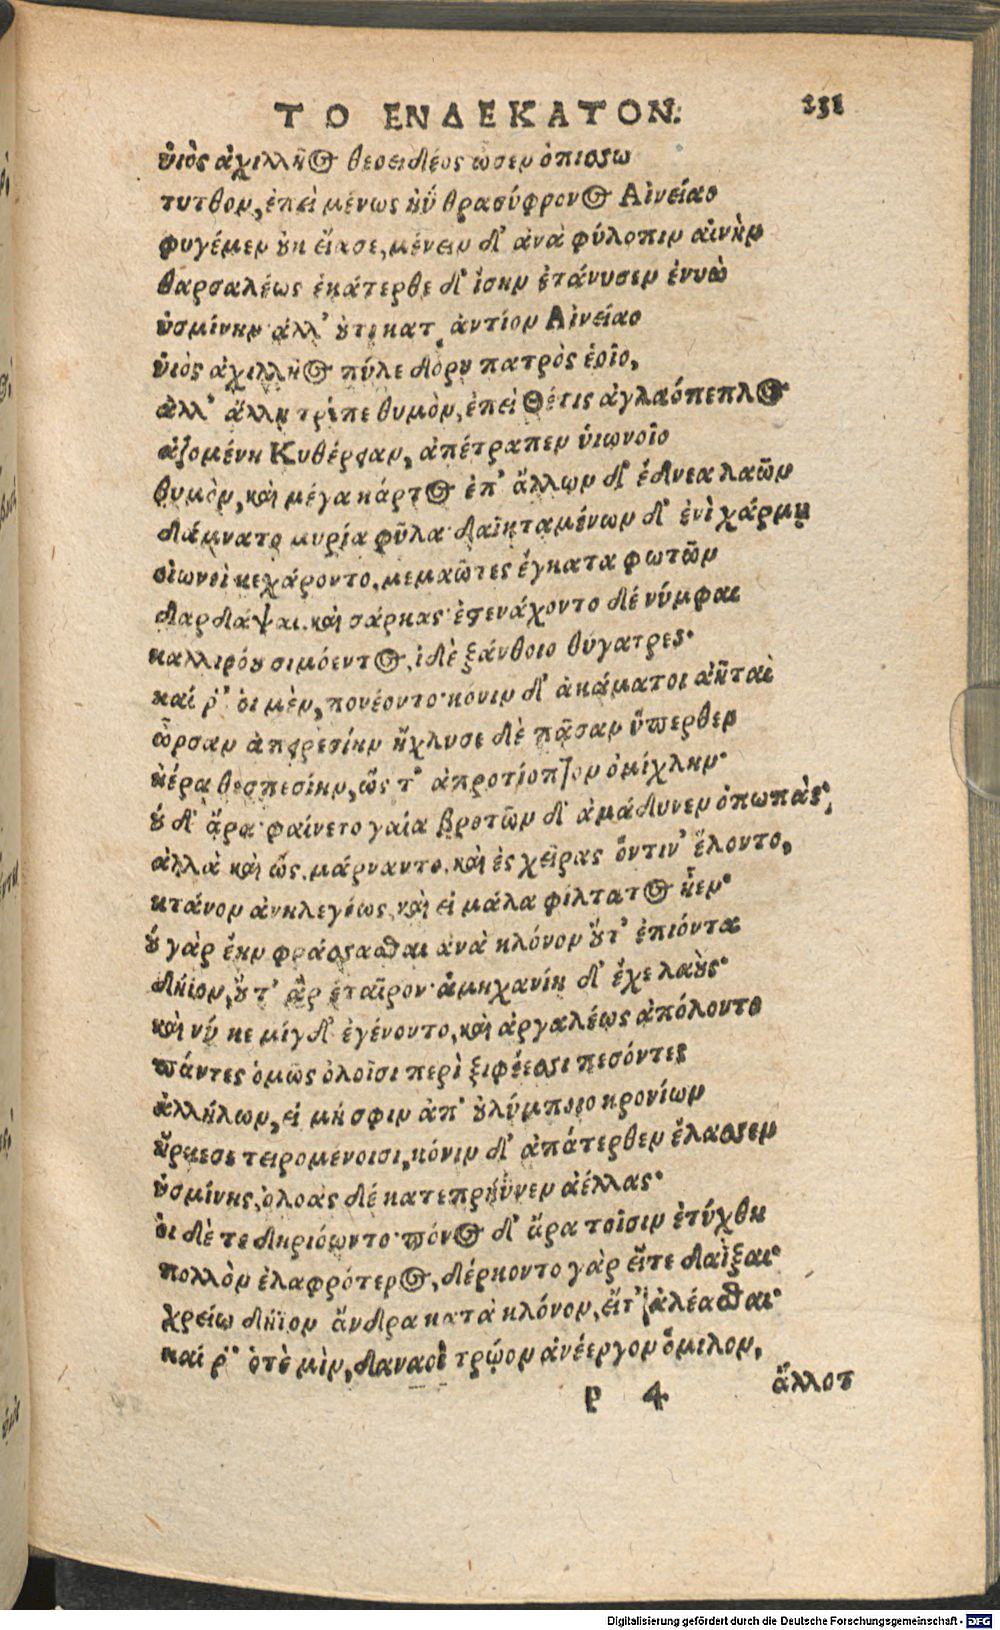 ΤΟ ΕΝΔΕΚΑΤΟΝ. 231
ὑιὸς ἀχιλλῆος θεοειδέος ὦσεν ὀπίσσω
τυτθον, ἐπεὶ μένως ἠΰ θρασύφρονος Αἰνείαο
φυγέμεν οὐκ εἴασε, μένειν δ' ἀνὰ φύλοπιν αἰνὴν
θαρσαλέως ἑκάτερθε δ' ἴσην ἐτάνυσεν ἐνυὼ
ὑσμίνην· ἀλλ' οὔτι κατ' ἀντίον Αἰνείαο
ὑιὸς ἀχιλλῆος πῆλε δόρυ πατρὸς ἑοῖο,
ἀλλ' ἄλλῃ τρέπε θυμὸν, ἐπεὶ Θέτις ἀγλαόπεπλος
ἁζομένη Κυθέρειαν, ἀπέτραπεν ὑιωνοῖο
θυμὸν, καὶ μέγα κάρτος ἐπ' ἄλλων δ' ἔθνεα λαῶν
δάμνατο μυρία φῦλα· δαϊκταμένων δ' ἐνὶ χάρμῃ
οἰωνοὶ κεχάροντο, μεμαῶτες ἔγκατα φωτῶν
δαρδάψαι. καὶ σάρκας· ἐστενάχοντο δέ νύμφαι
καλλιρόου σιμόεντος, ἰδὲ ξάνθοιο θύγατρες·
καί ῥ' οἱ μὲν, πονέοντο· κόνιν δ' ἀκάματοι ἀῆται
ὦρσαν ἀπειρεσίην ἤχλυσε δὲ πᾶσαν ὕπερθεν
ἠέρα θεσπεσίην, ὥς τ' ἀπροτίοπτον ὀμίχλην·
οὐ δ' ἄρα φαίνετο γαία βροτῶν δ' ἀμάθυνεν ὀπωπὰς,
ἀλλὰ καὶ ὣς μάρναντο. καὶ ἐς χεῖρας ὅντιν' ἕλοντο,
κτάνον ἀνηλεγέως, καὶ εἰ μάλα φίλτατος ἦεν·
οὐ γὰρ ἔην φράσσασθαι ἀνὰ κλόνον οὔτ' ἐπιόντα
δήϊον, οὔτ' ἂρ ἑταῖρον· ἀμηχανίη δ' ἔχε λαούς·
καὶ νύ κε μίγδ' ἐγένοντο, καὶ ἀργαλέως ἀπόλοντο
πάντες ὁμῶς ὀλοῖσι περὶ ξιφέεσσι πεσόντες
ἀλλήλων, εἰ μή σφιν ἀπ' οὐλύμποιο κρονίων
ἤρκεσε τειρομένοισι, κόνιν δ' ἀπάτερθεν ἔλασσεν
ὑσμίνης, ὀλοὰς δέ κατεπρήϋνεν ἀέλλας·
οἱ δὲ τε δηριόωντο· πόνος δ' ἄρα τοῖσιν ἐτύχθη
πολλὸν ἐλαφρότερος, δέρκοντο γὰρ εἴτε δαΐξαι
χρείω δήϊον ἄνδρα κατὰ κλόνον, εἴτ' ἀλέασθαι·
καί ῥ' ὁτὲ μὶν, δαναοὶ τρώων ἀνέεργον ὅμιλον,
ρ 4 ἄλλοτ
Digitalisierung gefördert durch die Deutsche Forschungsgemeinschaft - DFG